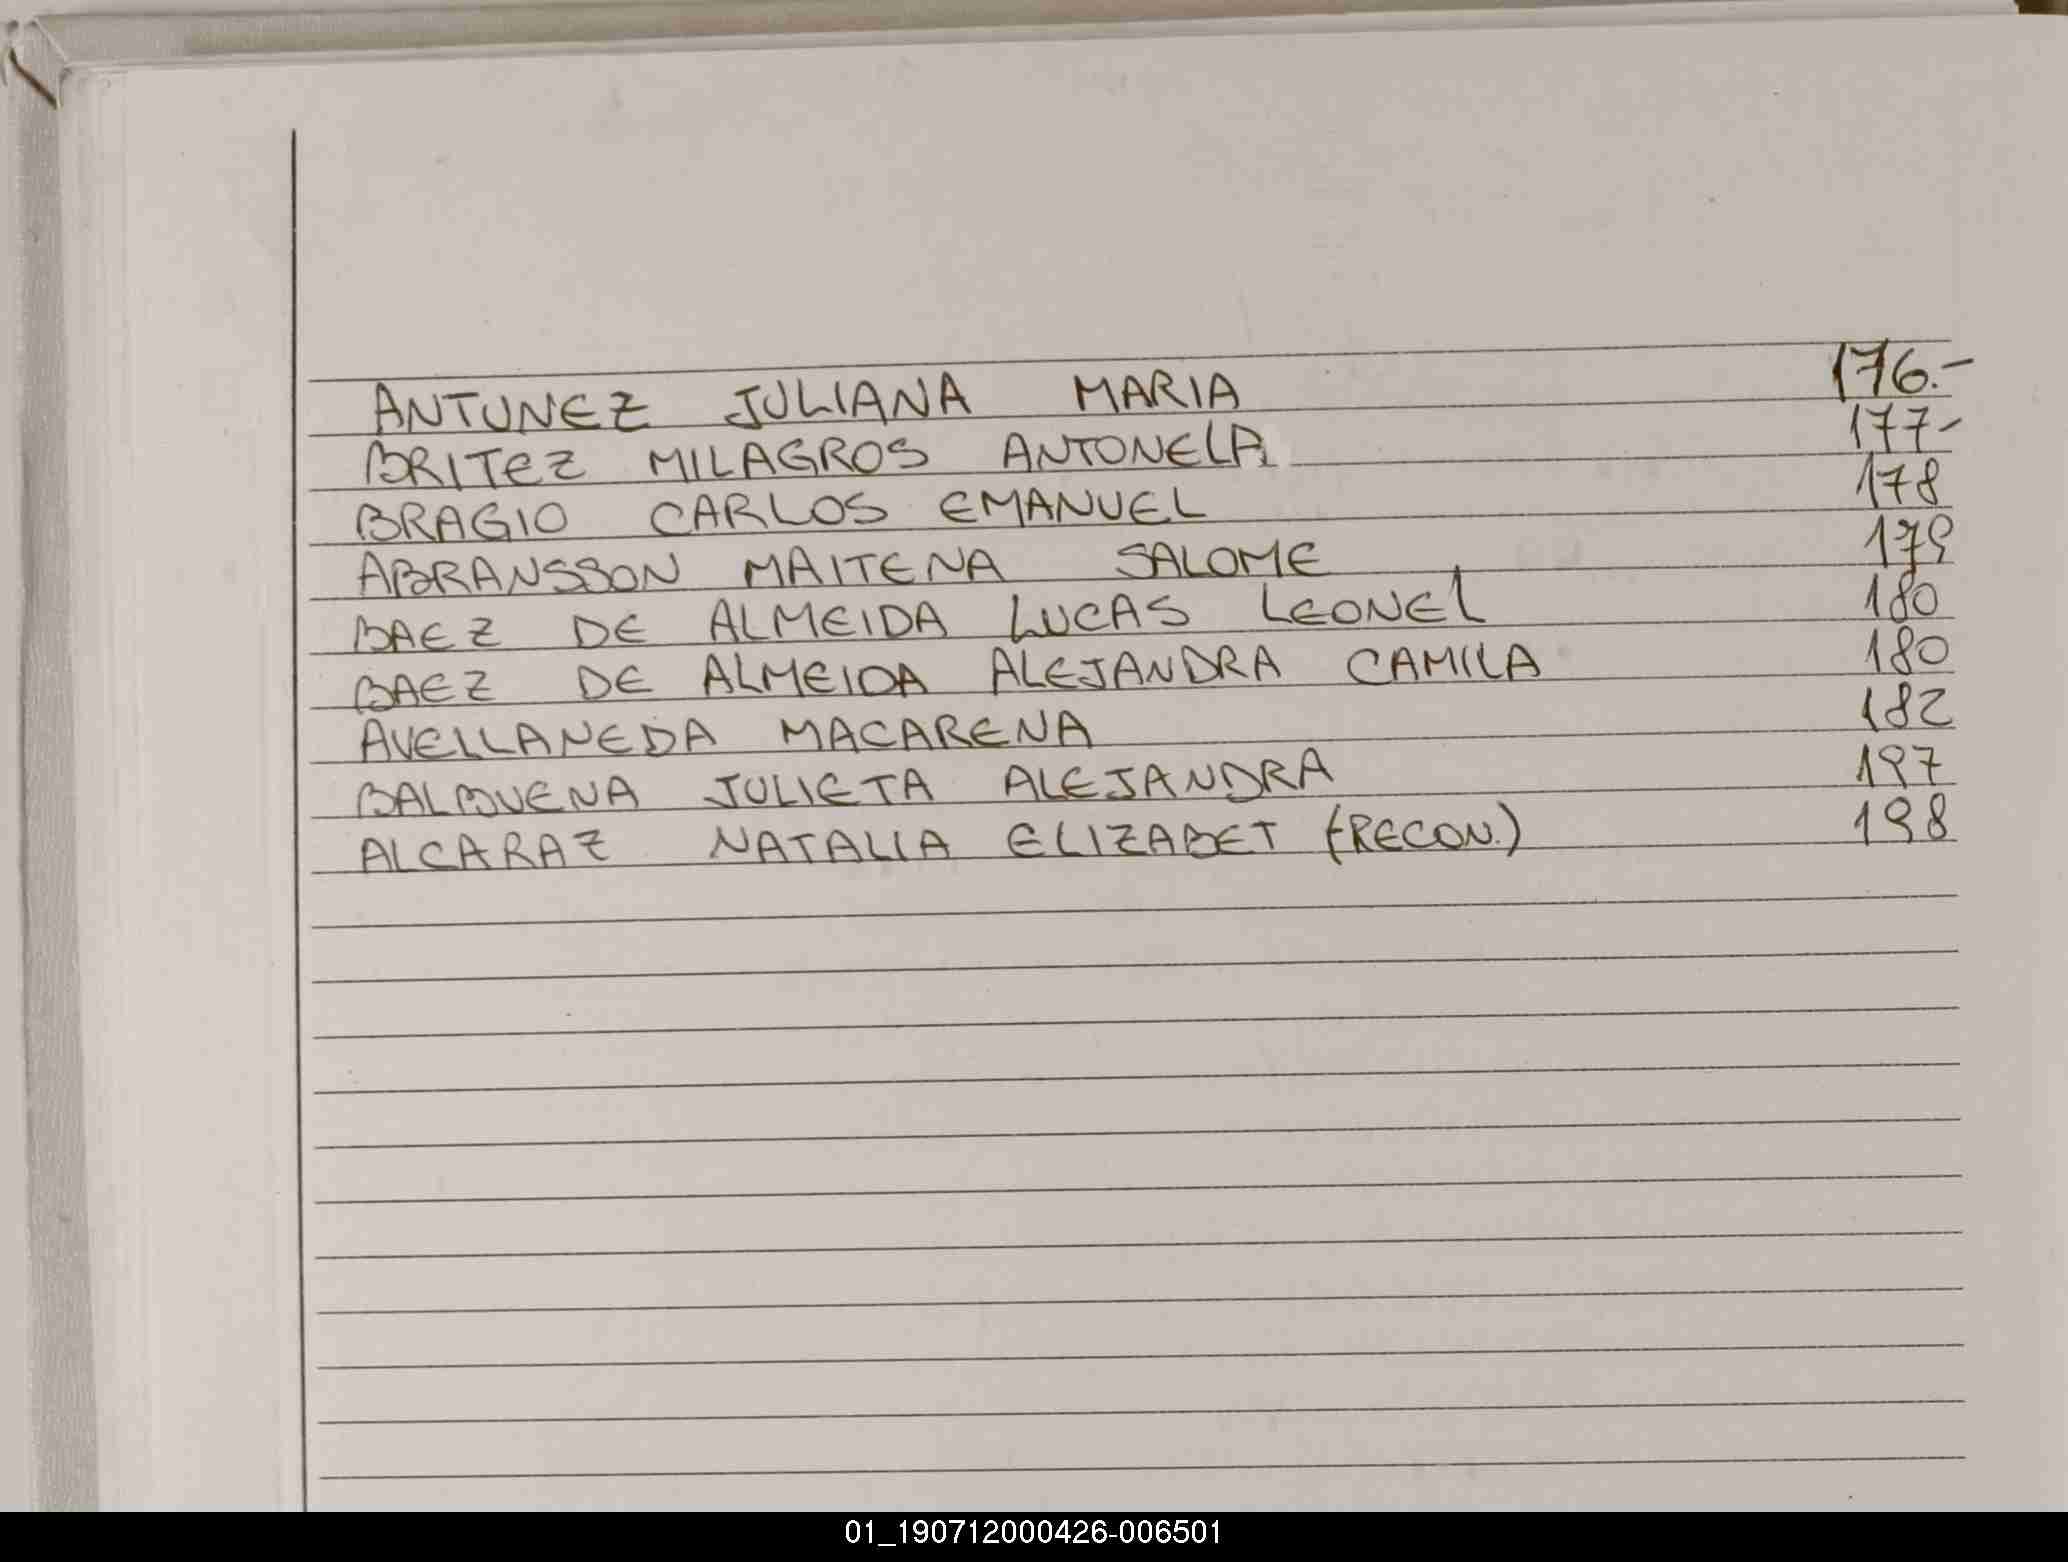 ANTUNEZ JULIANA MARIA 176.-
BRITEZ MILAGROS ANTONELA 177-
BRAGIO CARLOS EMANUEL 178
ABRANSSON MAITENA SALOME 179
BAEZ DE ALMEIDA LUCAS LEONEL 180
BAEZ DE ALMEIDA ALEJANDRA CAMILA 180
AVELLANEDA MACARENA 182
BALBUENA JULIETA ALEJANDRA 197
ALCARAZ NATALIA ELIZABET (RECON.) 198
01_190712000426-006501